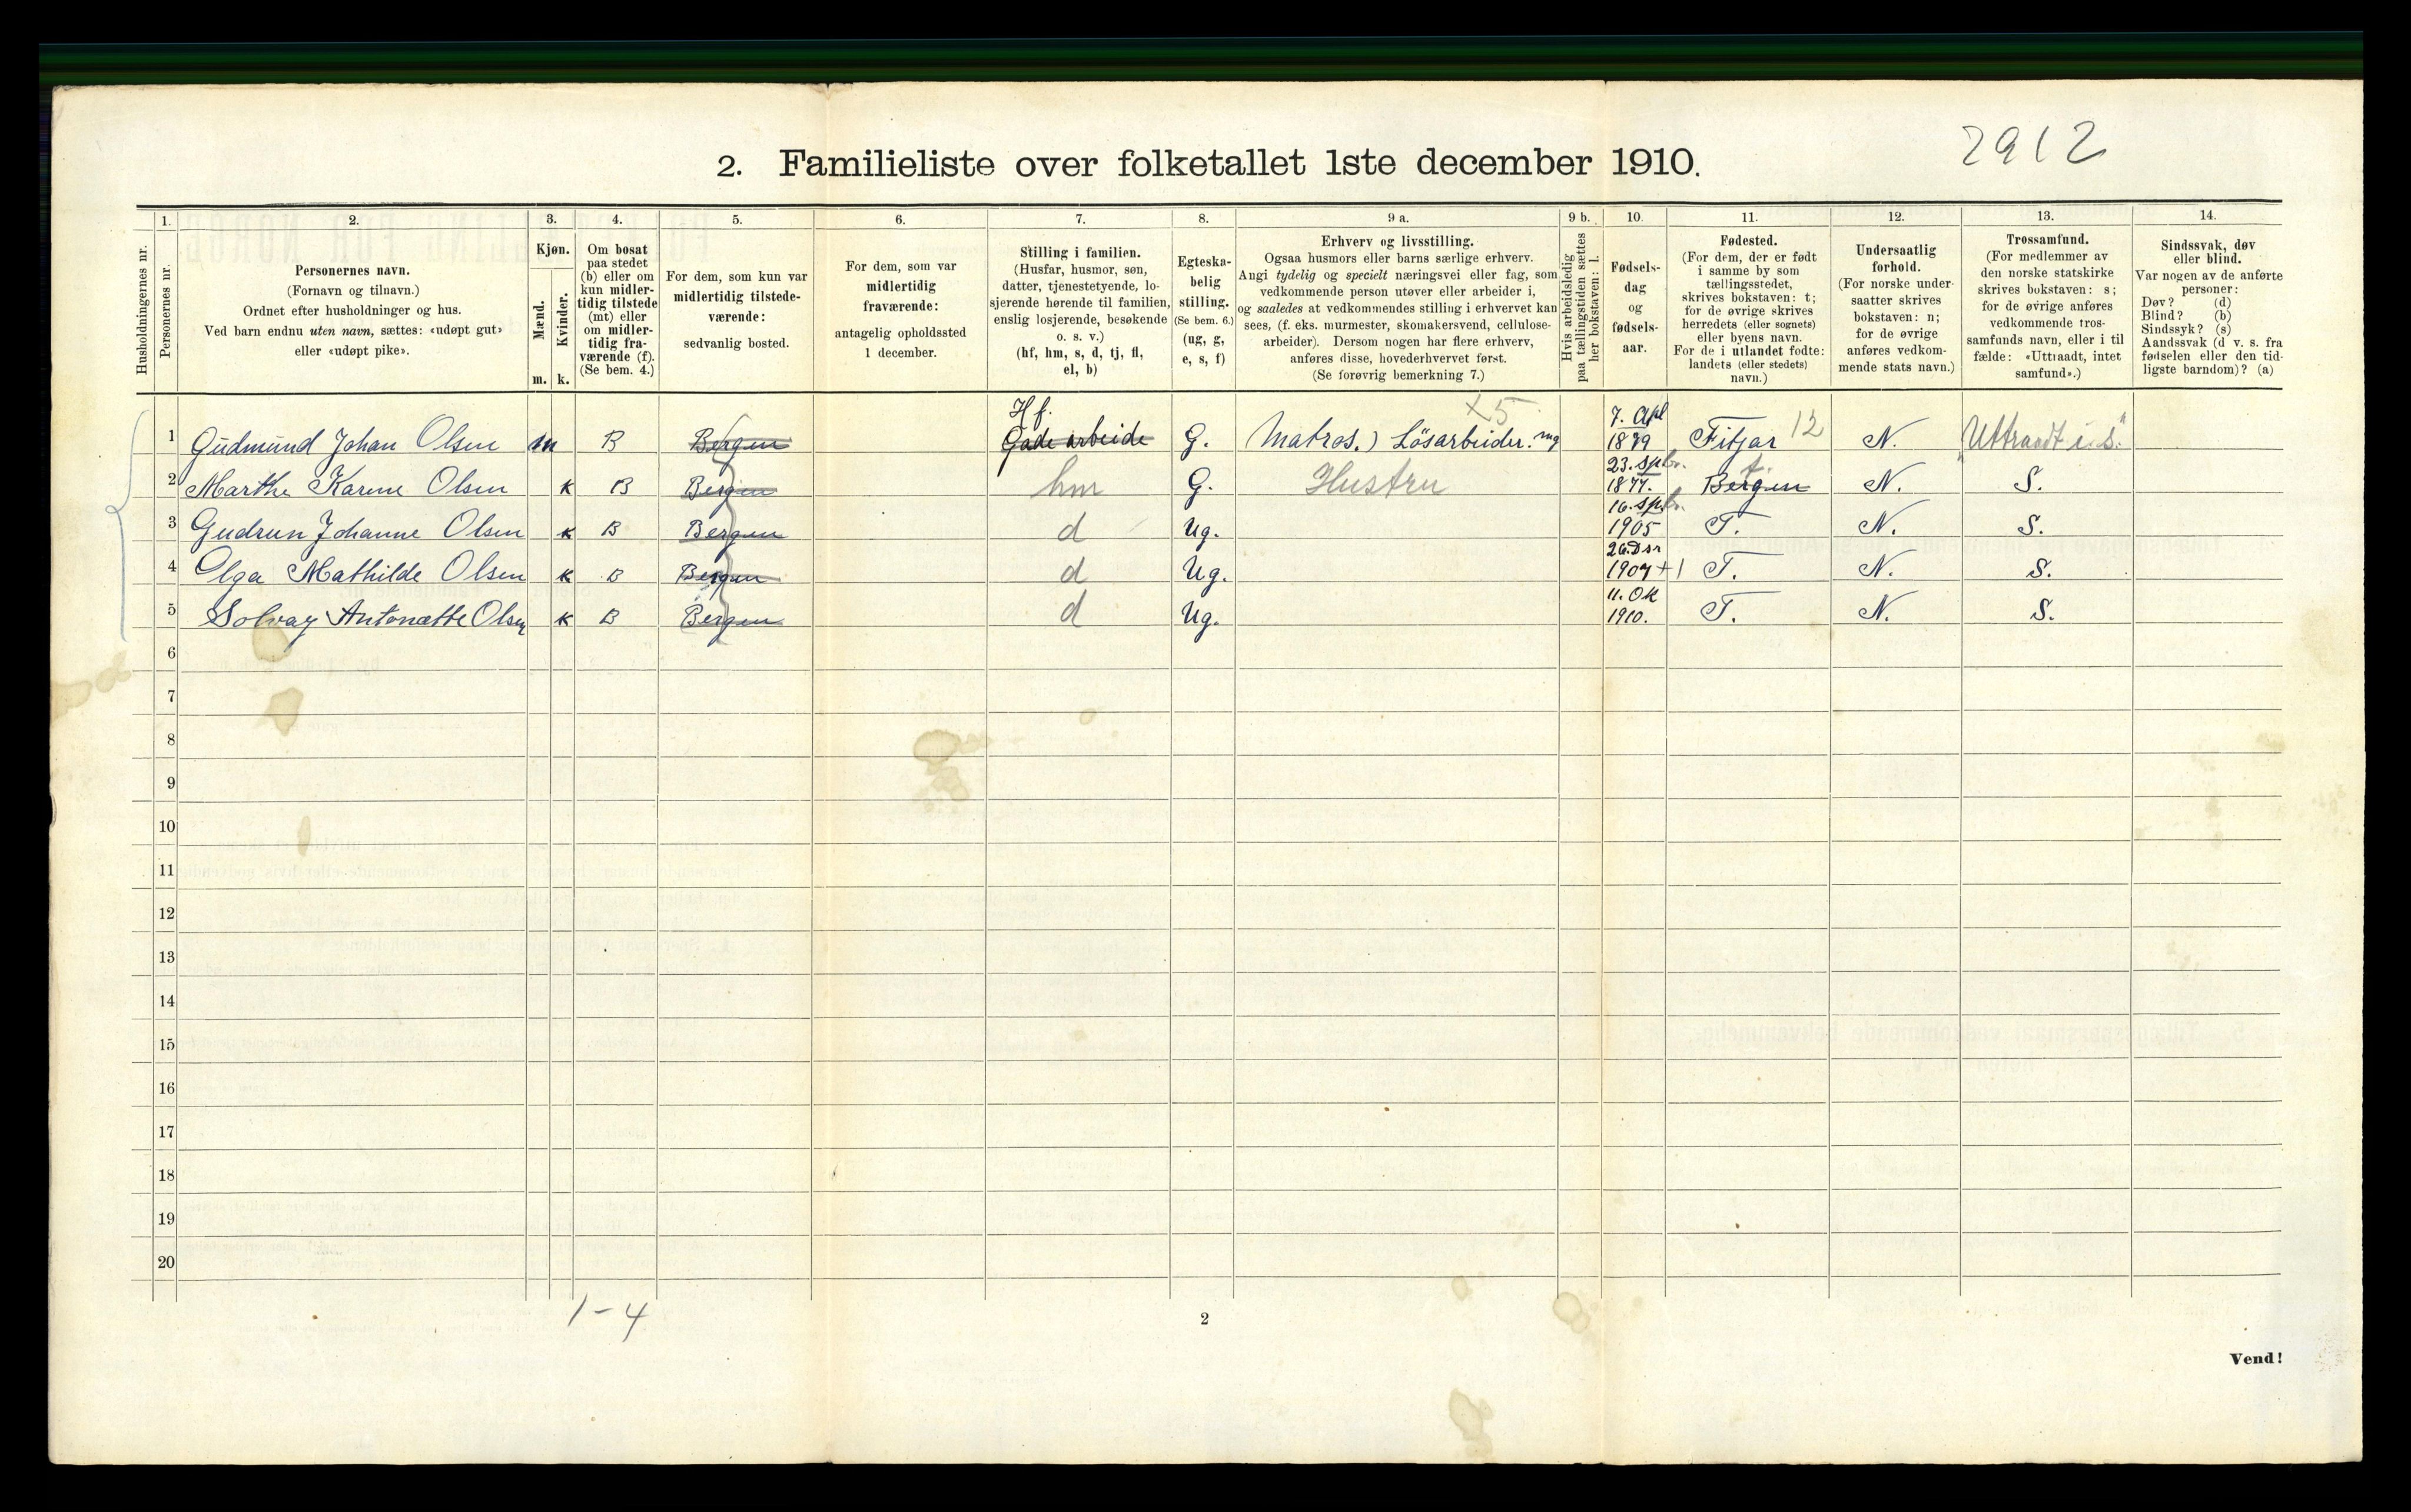 2912
2. Familieliste over folketallet 1ste december 1910.
Husholdningernes nr.
1.
Personernes nr.
2.
Personernes navn.
(Fornavn og tilnavn.)
Ordnet efter husholdninger og hus.
Ved barn endnu uten navn, sættes: «udøpt gut»
eller «udøpt pike».
3.
Kjøn.
Mænd.
Kvinder.
m. k.
4.
Om bosat
paa stedet
(b) eller om
kun midler-
tidig tilstede
(mt) eller
om midler-
tidig fra-
værende (f).
(Se bem. 4.)
5.
For dem, som kun var
midlertidig tilstede-
værende:
sedvanlig bosted.
6.
For dem, som var
midlertidig
fraværende:
antagelig opholdssted
1 december.
7.
Stilling i familien.
(Husfar, husmor, søn,
datter, tjenestetyende, lo-
sjerende hørende til familien,
enslig losjerende, besøkende
o. s. v.)
(hf, hm, s, d, tj, fl,
el, b)
8.
Egteska-
belig
stilling.
(Se bem. 6.)
(ug, g,
e, s, f)
9 a.
Erhverv og livsstilling.
Ogsaa husmors eller barns særlige erhverv.
Angi tydelig og specielt næringsvei eller fag, som
vedkommende person utøver eller arbeider i,
og saaledes at vedkommendes stilling i erhvervet kan
sees, (f. eks. murmester, skomakersvend, cellulose-
arbeider). Dersom nogen har flere erhverv,
anføres disse, hovederhvervet først.
(Se forøvrig bemerkning 7.)
9 b.
Hvis arbeidsledig
paa tællingstiden sættes
her bokstaven: l.
10.
Fødsels-
dag
og
fødsels-
aar.
11.
Fødested.
(For dem, der er født
i samme by som
tællingsstedet,
skrives bokstaven: t;
for de øvrige skrives
herredets (eller sognets)
eller byens navn.
For de i utlandet fødte:
landets (eller stedets)
navn.)
12.
Undersaatlig
forhold.
(For norske under-
saatter skrives
bokstaven: n;
for de øvrige
anføres vedkom-
mende stats navn.)
13.
Trossamfund.
(For medlemmer av
den norske statskirke
skrives bokstaven: s;
for de øvrige anføres
vedkommende tros-
samfunds navn, eller i til
fælde: «Uttraadt, intet
samfund».)
14.
Sindssvak, døv
eller blind.
Var nogen av de anførte
personer:
Døv? (d)
Blind? (b)
Sindssyk? (s)
Aandssvak (d v. s. fra
fødselen eller den tid-
ligste barndom)? (a)
Hf. x5 7. Apl
1 Gudmund Johan Olsen m B Bergen Gade arbeide G. Matros.) Lösarbeider. 1879 Fitjar 12 N. "Uttraadt i. s."
23. Spbr. t.
2 Marthe Karine Olsen k B Bergen hm G. Hustru 1877. Bergen N. S.
16. Spbr.
3 Gudrun Johanne Olsen k B Bergen d Ug. 1905 T. N. S.
26. Dsr
4 Olga Mathilde Olsen k B Bergen d Ug. 1907 +1 T. N. S.
11. Ok
5 Solvay Antonætte Olsen k B Bergen d Ug. 1910. T. N. S.
6
7
8
9
10
11
12
13
14
15
16
17
18
19
20
1-4
2
Vend!